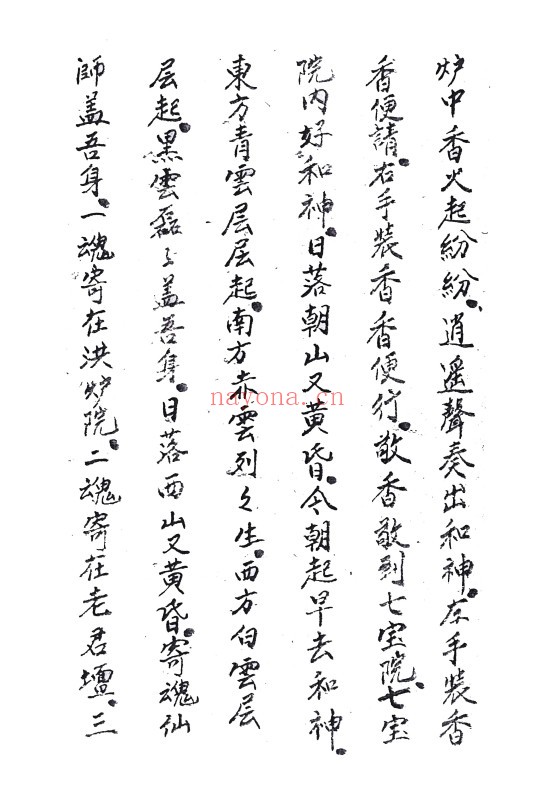 炉中香火起紛紛、逍遥聲奏出和神。左手装香
香便請。右手裝香香便行。敬香敬到七宝院。七宝
院内好和神。日落朝山又黄昏。今朝起早去和神。
東方青雲层层起。南方赤雲列々生。西方白雲层
层起。黑雲磊々盖吾身。日落西山又黄昏。寄魂仙
師盖吾身。一魂寄在洪炉院。二魂寄在老君壇。三
nayona.cn